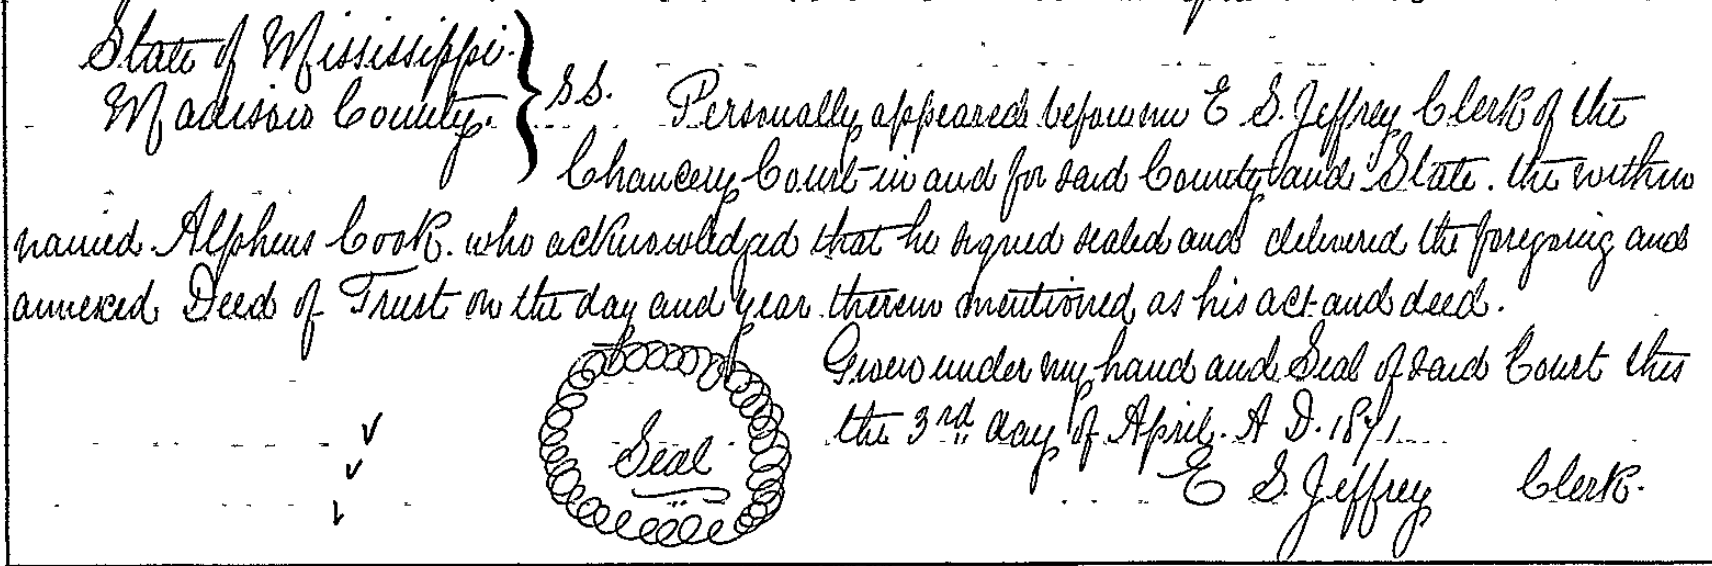 State of Mississippi.
Madison County.
S.S. Personally appeared before me E S. Jeffrey Clerk of the
Chancery Court in and for said County and State. the within
named Alpheus Cook. who acknowledged that he signed sealed and delivered the foregoing and
annexed Deed of Trust on the day and year therein mentioned as his act and deed.
Given under my hand and Seal of said Court this
the 3rd day of April. A D. 1871
Seal
E S. Jeffrey Clerk.